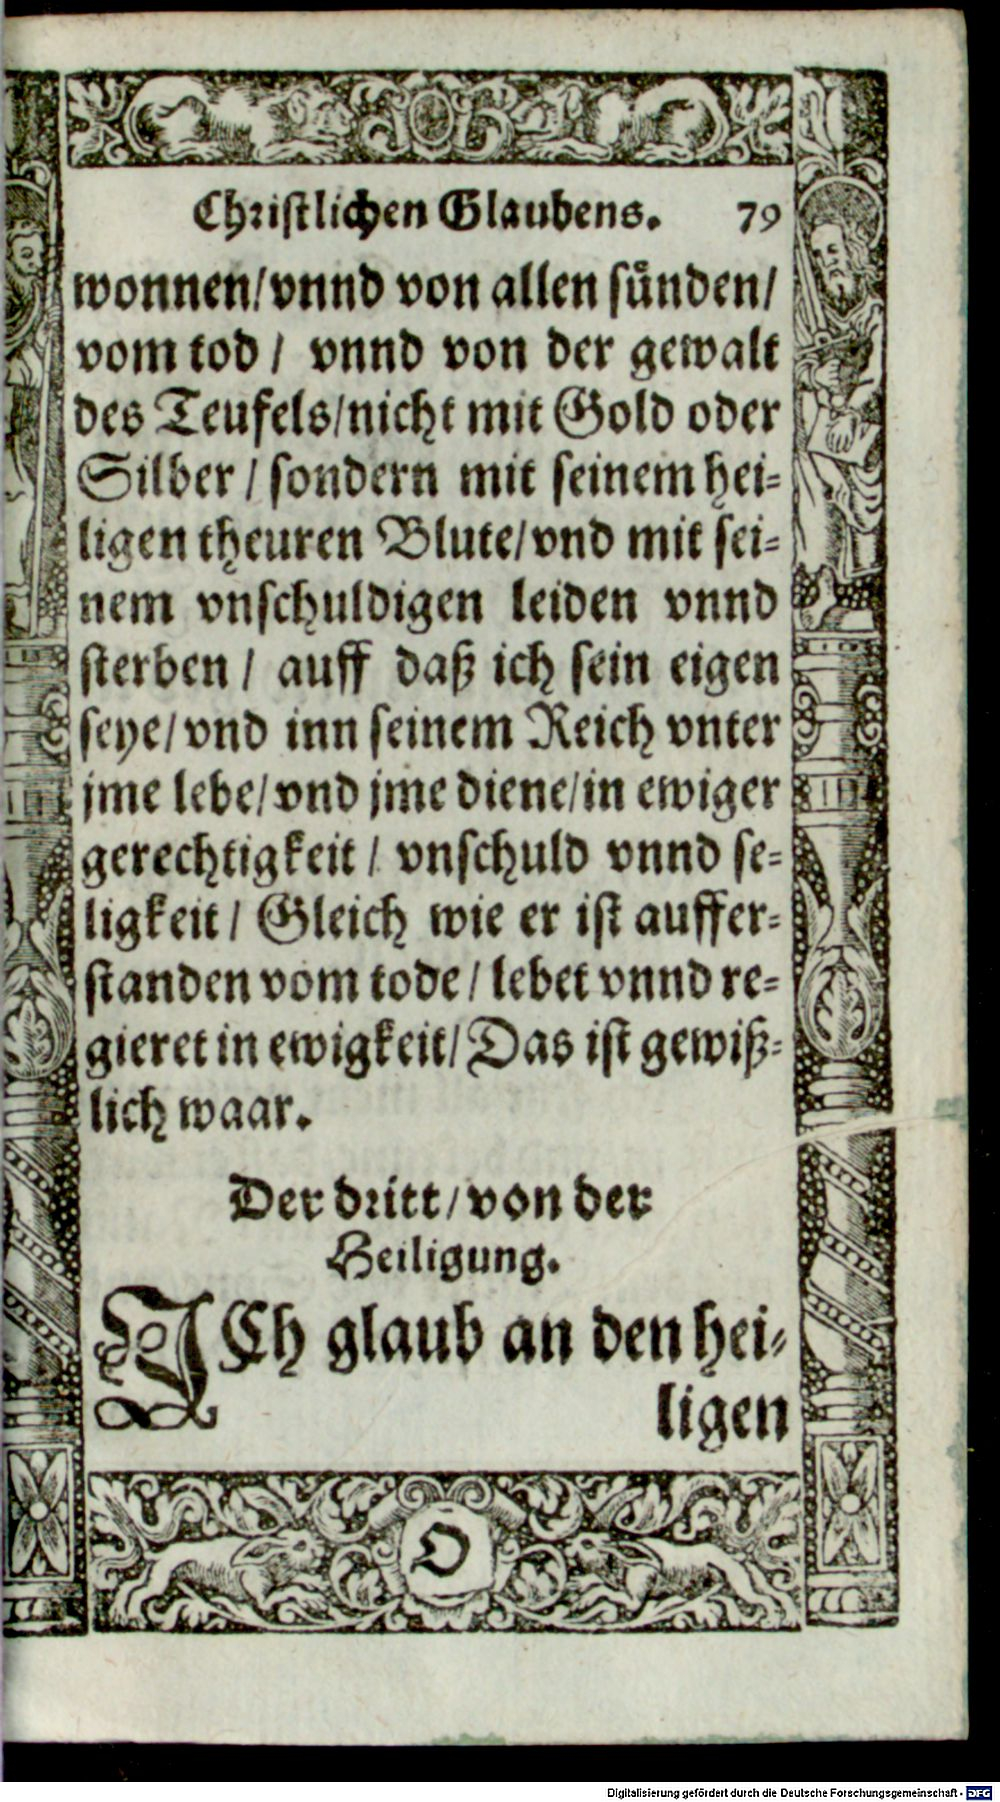 Christlichen Glaubens. 79
wonnen/vnnd von allen sünden/
vom tod / vnnd von der gewalt
des Teufels/nicht mit Gold oder
Silber / sondern mit seinem hei-
ligen theuren Blute/vnd mit sei-
nem vnschuldigen leiden vnnd
sterben / auff daß ich sein eigen
seye/vnd inn seinem Reich vnter
jme lebe/vnd jme diene/in ewiger
gerechtigkeit / vnschuld vnnd se-
ligkeit / Gleich wie er ist auffer-
standen vom tode / lebet vnnd re-
gieret in ewigkeit/Das ist gewiß-
lich waar.
Der dritt/von der
Heiligung.
ICh glaub an den hei-
ligen
O
Digitalisierung gefördert durch die Deutsche Forschungsgemeinschaft - DFG